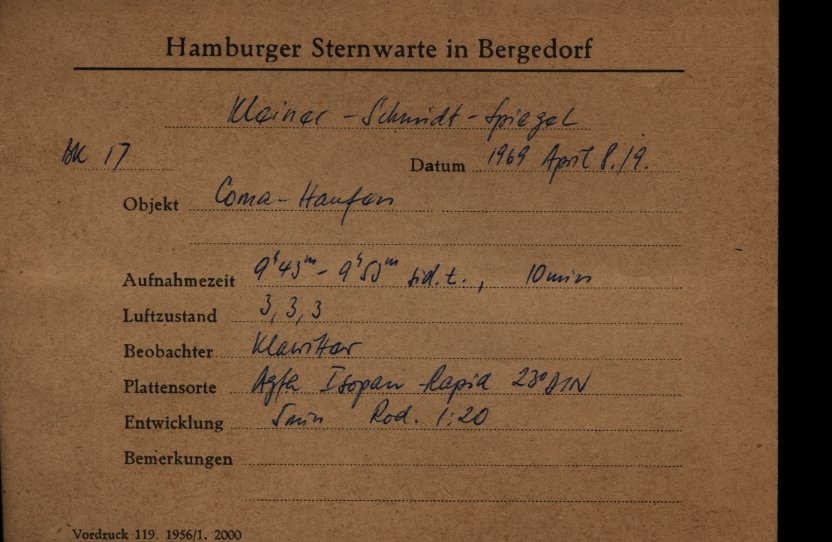 Hamburger Sternwarte in Bergedorf
Kleiner - Schmidt - Spiegel
BK 17 Datum 1969 April 8./9.
Objekt Coma - Haufen
Aufnahmezeit 9h 43m - 9h 53m sid. t., 10 min
Luftzustand 3, 3, 3
Beobachter Klawitter
Plattensorte Agfa Isopan Rapid 23° DIN
Entwicklung 5 min Rod. 1:20
Bemerkungen
Vordruck 119. 1956/1. 2000